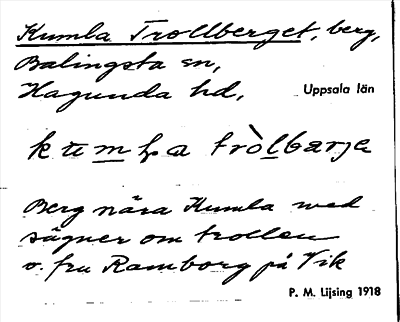 Kumla Trollberget, berg,
Balingsta sn,
Hagunda hd,
Uppsala län
Berg nära Kumla med
sägner om trollen
o. fru Ramborg på Vik
P. M. Lijsing 1918